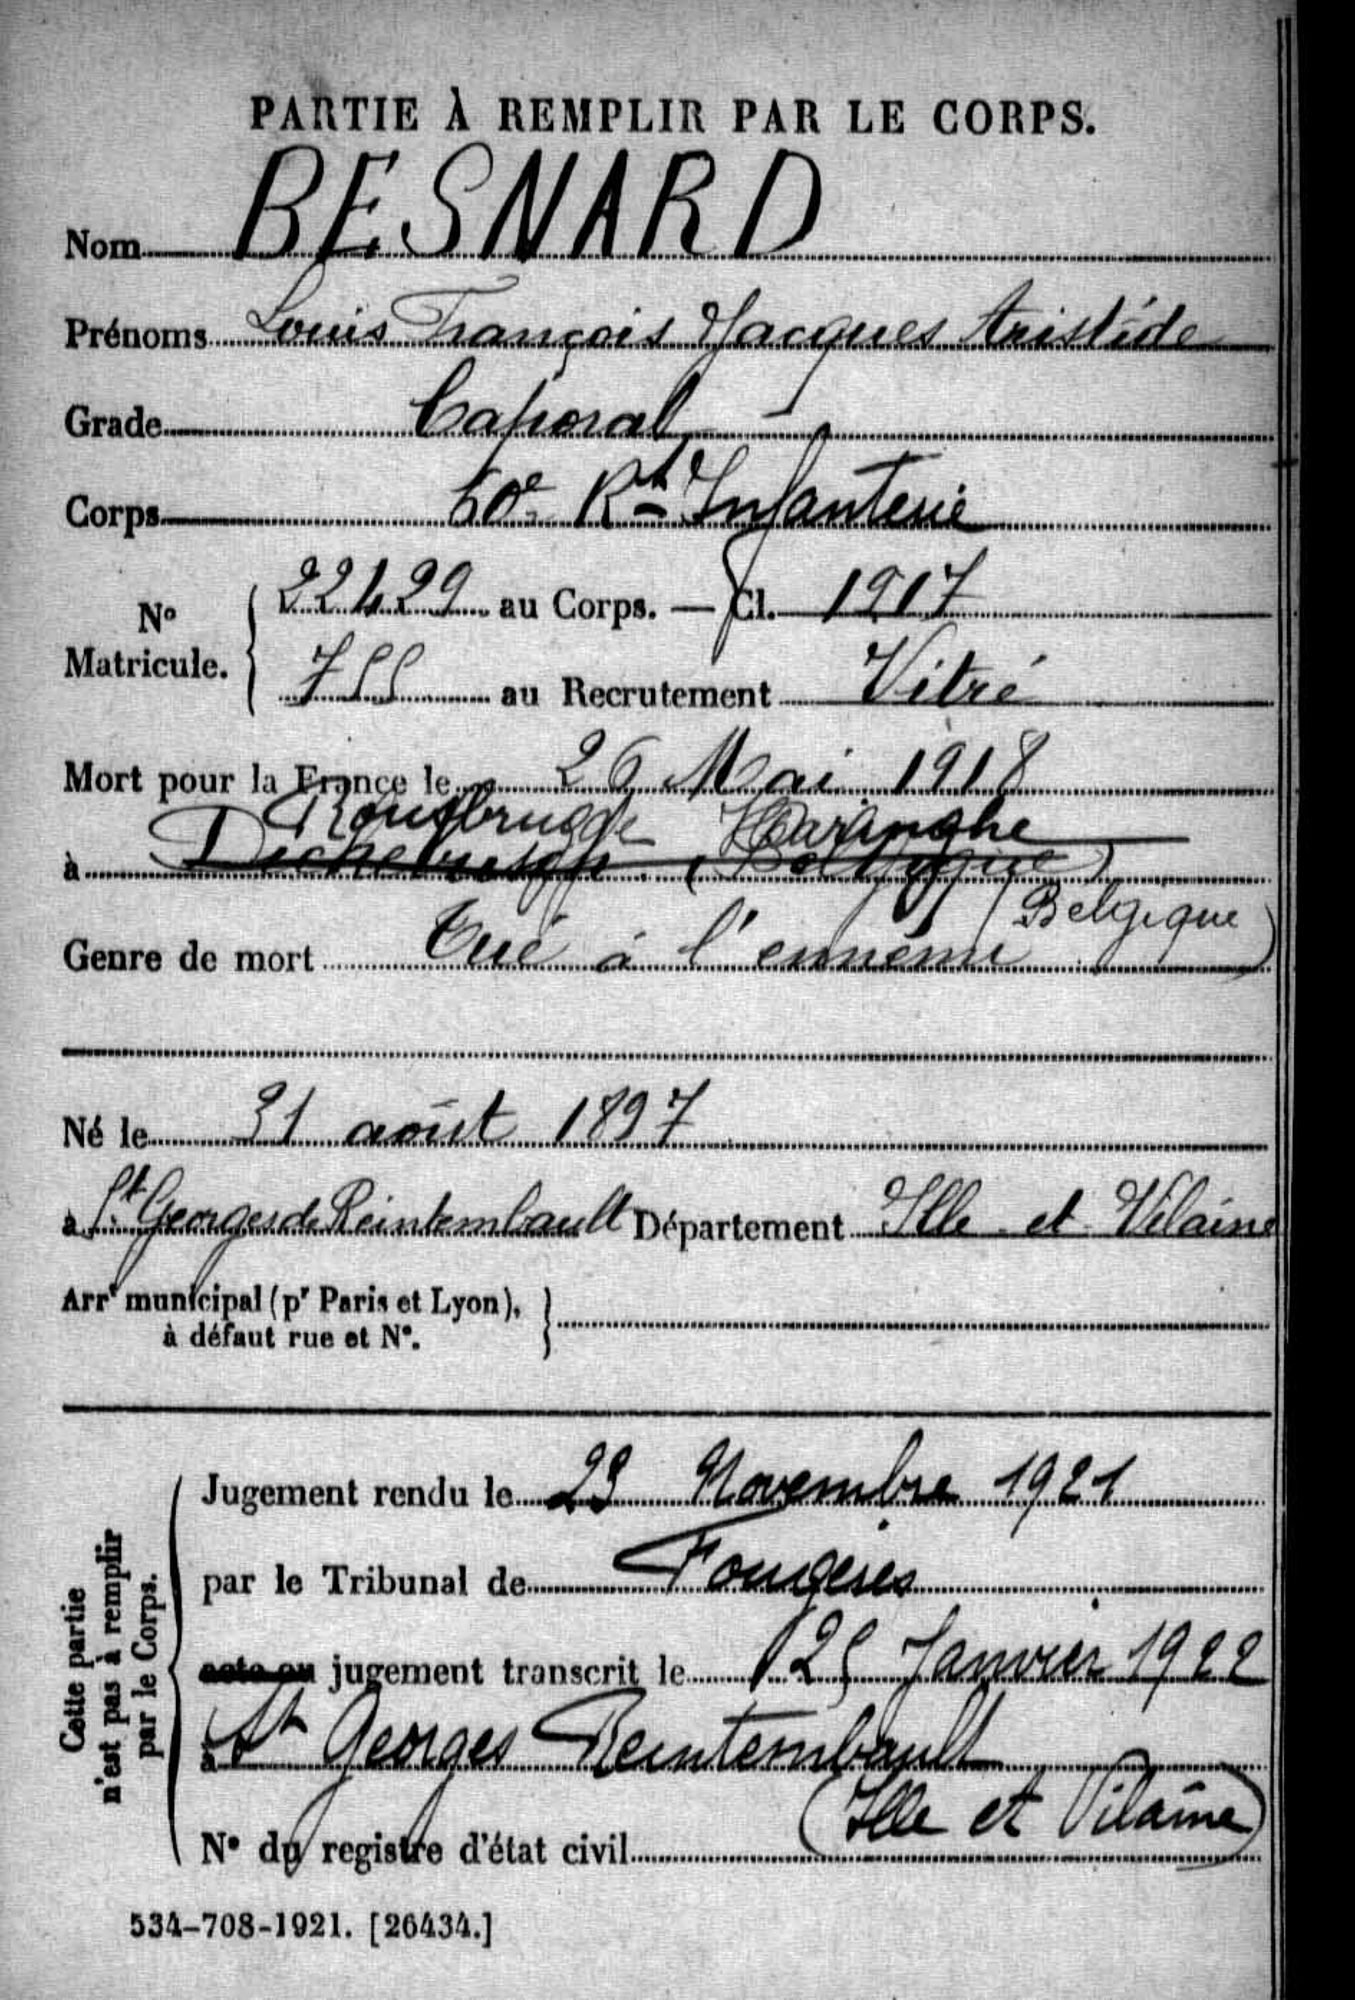 PARTIE À REMPLIR PAR LE CORPS.
Nom BESNARD
Prénoms Louis François Jacques Aristide
Grade Caporal
Corps 60e Rt Infanterie
No Matricule. 22429 au Corps. — Cl. 1917
755 au Recrutement Vitré
Mort pour la France le 26 Mai 1918
Rousbrugge Haringhe
à (Belgique)
(Belgique)
Genre de mort Tué à l'ennemi
Né le 31 août 1897
à St Georges de Reintembault Département Ille et Vilaine
Arrt municipal (pr Paris et Lyon),
à défaut rue et No.
Cette partie
n'est pas à remplir
par le Corps.
Jugement rendu le 23 Novembre 1921
par le Tribunal de Fougères
acte ou jugement transcrit le 25 Janvier 1922
à St Georges Reintembault
(Ille et Vilaine)
No du registre d'état civil
534-708-1921. [26434.]